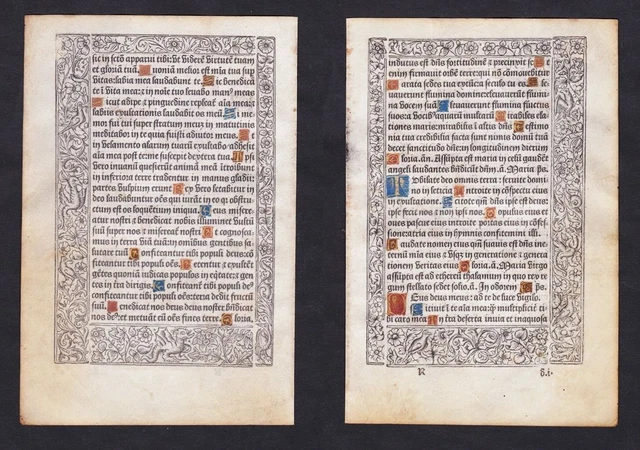 sic in scto apparui tibi: vt viderē virtutē tuam
et gloriā tuā. Quoniā melior est mīa tua sup
vitas: labia mea laudabunt te. Sic benedicā
te ī vita mea: ⁊ in noīe tuo leuabo man⁹ meas
Sicut adipe ⁊ pinguedine repleat̄ aīa mea: ⁊
labiis exultationis laudabit os meū. Si me⸗
mor fui tui super stratum meum in matutinis
meditabor in te quia fuisti adiutor meus. Et
in velamento alarum tuarū exultabo: adhesit
aīa mea post te: me suscepit dextera tua. Ipsi
vero inuanū quesierūt animā meā: introibunt
in inferiora terre tradentur in manus gladii:
partes vulpium erunt. Rex vero letabitur in
deo laudabuntur oēs qui iurāt in eo: quia
est os loquētium iniqua. Deus misere⸗
atur nostri ⁊ benedicat nobis illuminet vultū
suū super nos ⁊ misereat̄ nostri. Ut cognosca⸗
mus in terra viā tuā: in omnibus gentibus sa⸗
lutare tuū. Confiteantur tibi populi de⁹:
confiteant̄ tibi populi oēs. Letentur ⁊ exultēt
gētes quoniā iudicas populos in eq̄tate: ⁊ gen
tes in tr̄a dirigis. Confiteant̄ tibi populi de⁹
confiteantur tibi populi oēs: terra dedit fructū
suū. Benedicat nos deus deus noster bn̄dicat
nos de⁹: et metuāt eū oēs fines terre. Gloria.
indutus est dn̄s fortitudinē ⁊ precinxit se. Et
enim firmauit orbē terre: qui nō cōmouebitur
Parata sedes tua ex tūc: a seculo tu es. Ele
uauerunt flumina domine: eleuauerunt flumi
na vocem suā. Eleuauerunt flumina fluctus
suos: a vocib⁹ aquarū multarū. Mirabiles ela
tiones maris: mirabilis ī altis dn̄s. Testimo
nia tua credibilia facta sunt nimis domū tuā
decet sanctitudo dn̄e in longitudinem dierum
Gloria. añ. Assūpta est maria in celū gaudēt
angeli laudantes bn̄dicūt dn̄m. añ. Maria. ps.
Jubilate deo omnis terra: seruite do⸗
mino in leticia. Introite in cōspectu eius
in exultatione. Scitote qm̄ dn̄s ipse est deus:
ipse fecit nos ⁊ non ipsi nos. Populus eius et
oues pascue eius: introite portas eius in cōfes⸗
sione: atria eius in hymnis confitemini illi.
Laudate nomen eius qm̄ suauis est dn̄s: ine
ternū mīa eius ⁊ vsq̄ in generatione ⁊ genera⸗
tionem veritas eius. Gloria. añ. Maria virgo
assūpta est ad ethereū thalamum in quo rex re
gum stellato sedet solio. añ. In odorem. ps.
Deus deus meus: ad te de luce vigilo.
Sitiuit ī te aīa mea: q̄ multiplicit̄ ti
bi caro mea. In terra deserta inuia et inaquosa
R
g.i.